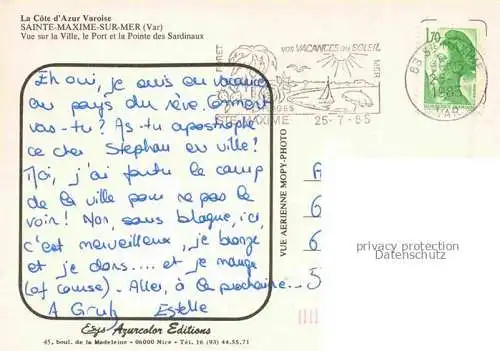 La Côte d'Azur Varoise
SAINTE-MAXIME-SUR-MER (Var)
Vue sur la Ville, le Port et la Pointe des Sardinaux
FORET
VOS VACANCES AU SOLEIL
MER
1985
STE-MAXIME 25-7-85
83 S
1985
VAR
1,70
Eh oui, je suis en vacances
au pays du rêve. Comment
vas-tu? As-tu apostrophé
ce cher Stephan en ville!
Moi, j'ai foutu le camp
de la ville pour ne pas le
voir! Non, sans blague, ici
c'est merveilleux, je bronze
et je dors.... et je mange
(of course). Allez, à la prochaine...
A Gruß Estelle
VUE AERIENNE MOPY-PHOTO
6
6
5
privacy protection
Datenschutz
Azurcolor Editions
45, boul. de la Madeleine - 06000 Nice - Tél. 16 (93) 44.55.71